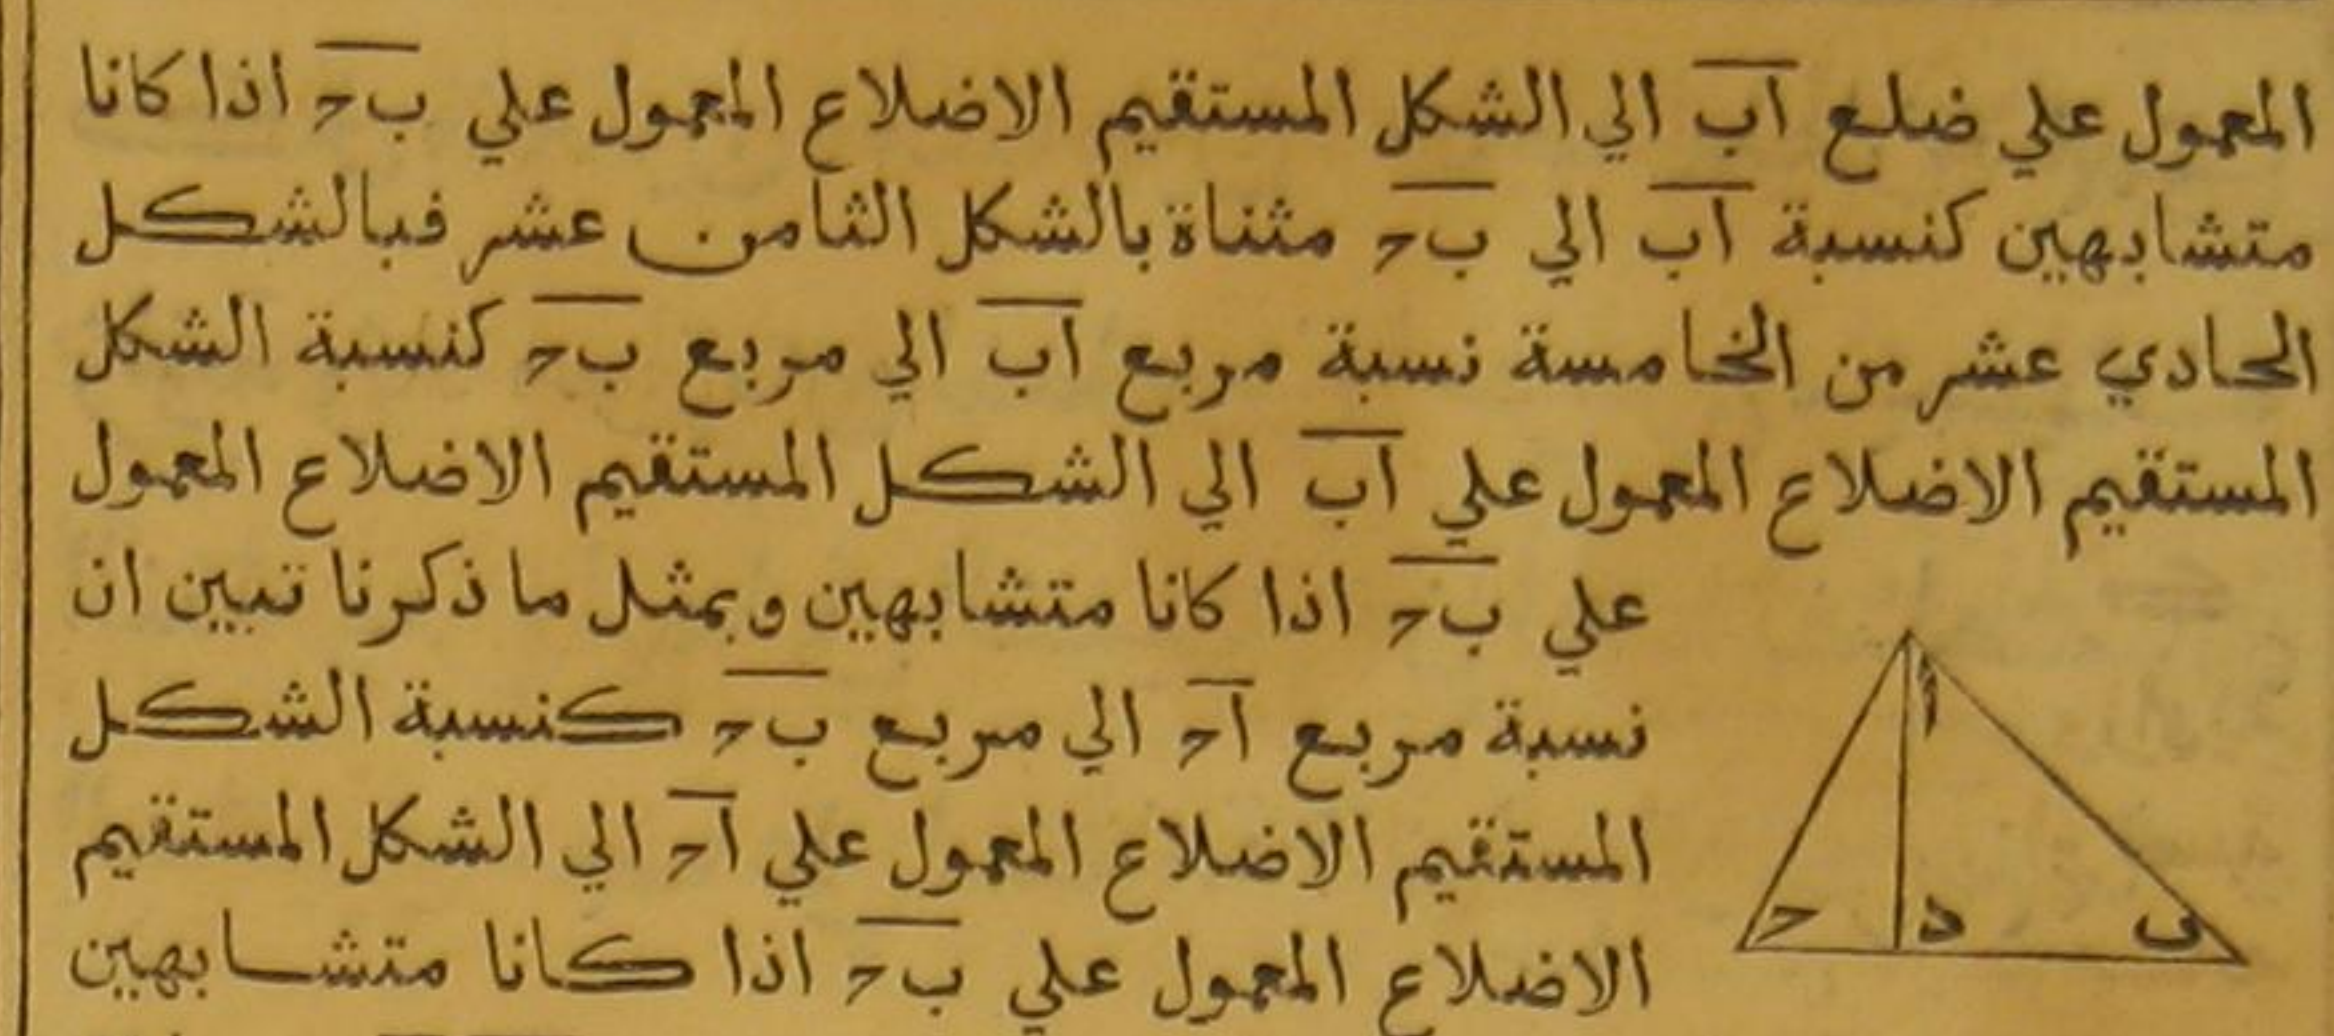 المعمول علي ضلع اب الي الشكل المستقيم الاضلاع المعمول علي ب ح اذا كانا
متشابهين كنسبة اب الي ب ح مثناة بالشكل الثامن عشر فبالشكل
الحادي عشر من الخامسة نسبة مربع اب الي مربع ب ح كنسبة الشكل
المستقيم الاضلاع المعمول علي اب الي الشكل المستقيم الاضلاع المعمول
علي ب ح اذا كانا متشابهين وبمثل ما ذكرنا تبين ان
نسبة مربع ا ح الي مربع ب ح كنسبة الشكل
المستقيم الاضلاع المعمول علي ا ح الي الشكل المستقيم
الاضلاع المعمول علي ب ح اذا كانا متشابهين
ا
ب د ح